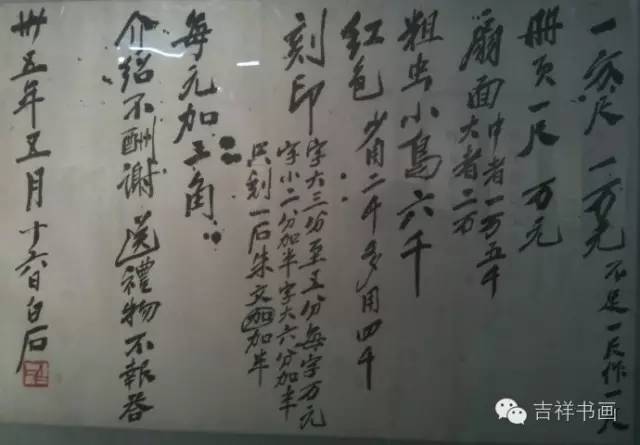 一方尺 一万元 不足一尺作一尺
册页一尺 万元
扇面 中者一万五千
大者二万
粗虫小鸟六千
红色 少用二千多用四千
刻印 字大三分至五分每字万元
字小二分加半字大六分加半
只刻一石朱文加加半
每元加三角
介绍不酬谢 送禮物不報答
卅五年五月十六日白石
吉祥书画